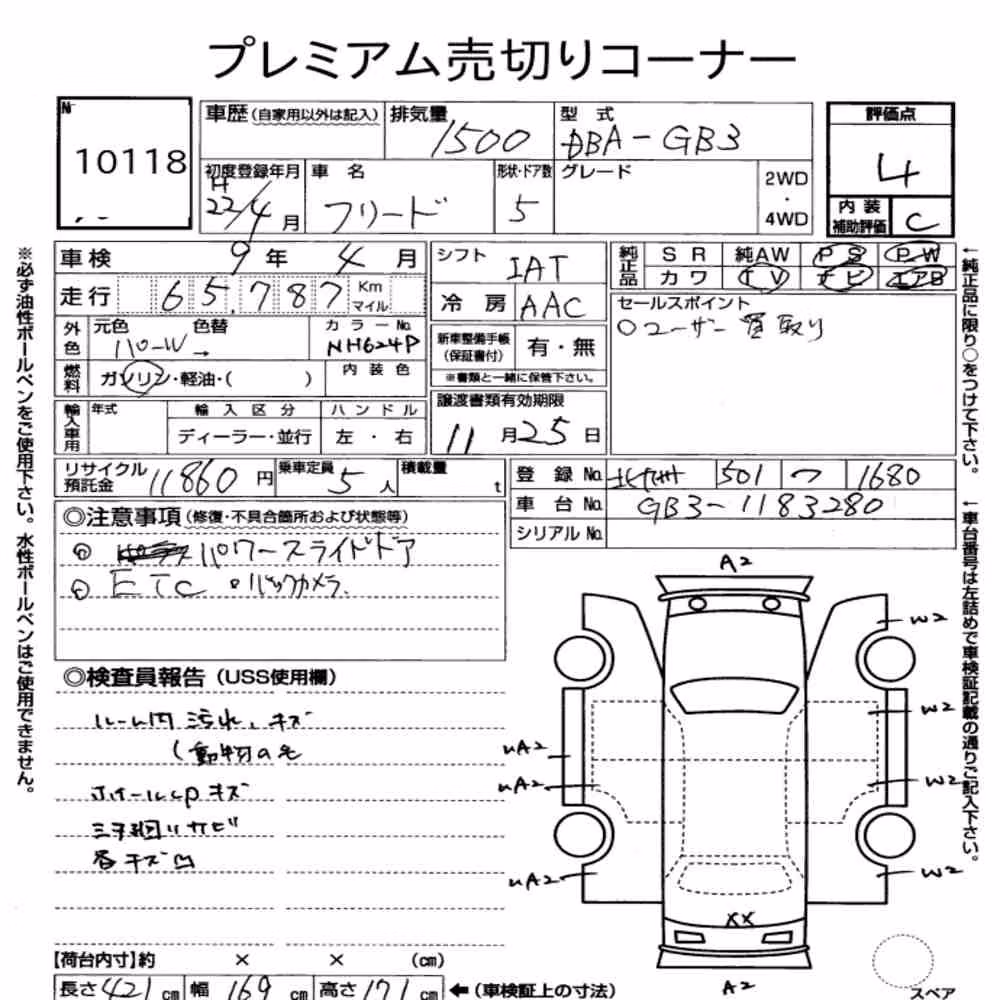 プレミアム売切りコーナー
No 10118
車歴(自家用以外は記入) 排気量 1500 型式 DBA-GB3
評価点 4
初度登録年月 H22/4月 車名 フリード 形状・ドア数 5 グレード 2WD・4WD
内装補助評価 C
車検 9年 4月
走行 65,787 Km マイル
外色 元色 パローW → 色替 カラーNo. NH624P
燃料 ガソリン・軽油・( ) 内装色
輸入車用 年式 輸入区分 ディーラー・並行 ハンドル 左・右
シフト IAT
冷房 AAC
新車整備手帳(保証書付) 有・無
※書類と一緒に保管下さい。
譲渡書類有効期限
11月25日
純正品 SR 純AW PS PW
カワ TV ナビ エアB
セールスポイント
○ユーザー買取り
リサイクル預託金 11860円 乗車定員 5人 積載量 t
登録No. 北九州 501 つ 1680
車台No. GB3-1183280
シリアルNo.
◎注意事項(修復・不具合箇所および状態等)
パワースライドドア
ETC・バックカメラ
◎検査員報告(USS使用欄)
ルーム内 汚れ、キズ
(動物の毛
ホイールcpキズ
下廻りサビ
各キズ凹
A2
W2
W2
uA2
uA2
W2
uA2
W2
XX
A2
スペア
【荷台内寸】約 × × (cm)
長さ421cm 幅169cm 高さ171cm ←(車検証上の寸法)
※必ず油性ボールペンをご使用下さい。水性ボールペンはご使用できません。
←純正品に限り○をつけて下さい。
←車台番号は左詰めで車検証記載の通りご記入下さい。